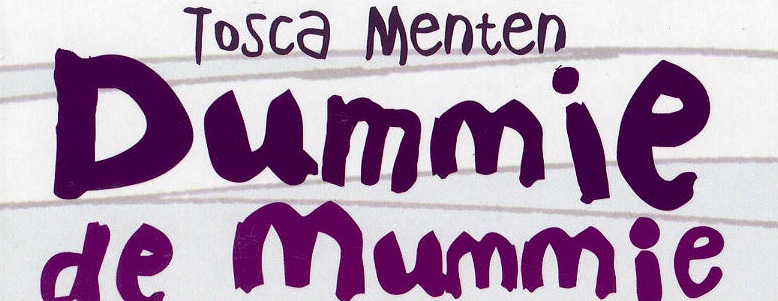 Tosca Menten
Dummie
de Mummie